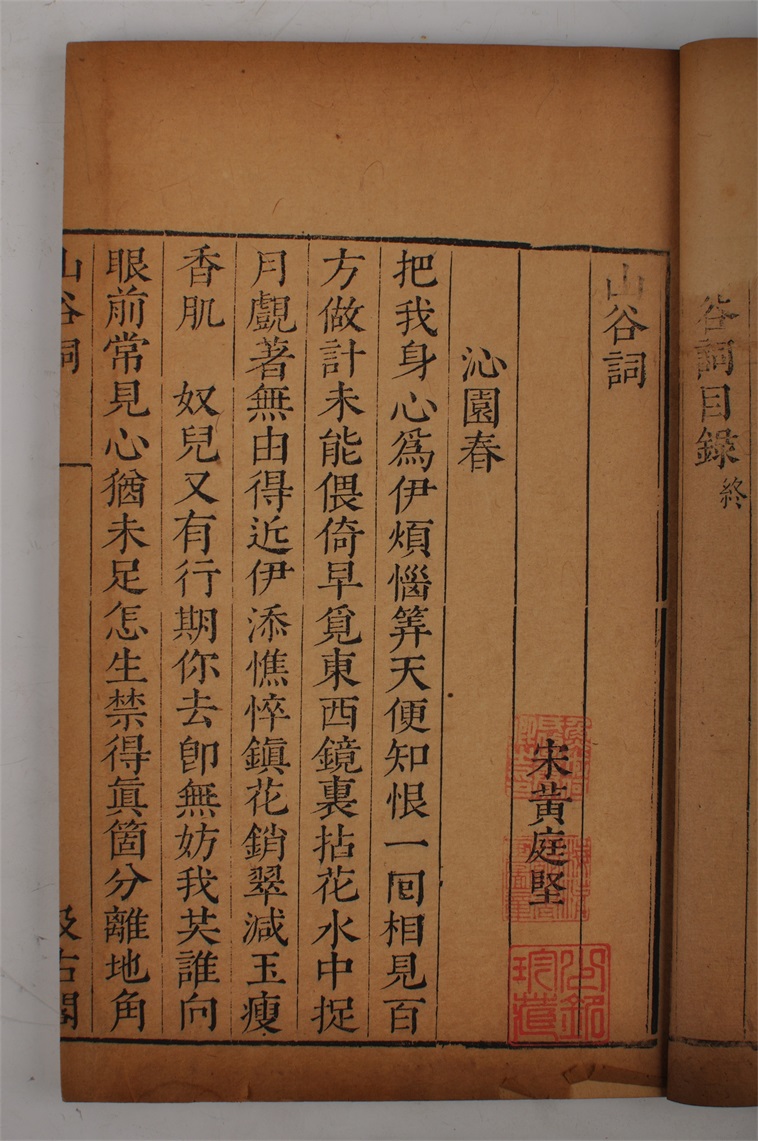 谷詞目錄終
山谷詞
宋黃庭堅
沁園春
把我身心爲伊煩惱筭天便知恨一囘相見百
方做計未能偎倚早覓東西鏡裏拈花水中捉
月覷著無由得近伊添憔悴鎮花銷翠減玉瘦
香肌　奴兒又有行期你去卽無妨我共誰向
眼前常見心猶未足怎生禁得眞箇分離地角
山谷詞
汲古閣